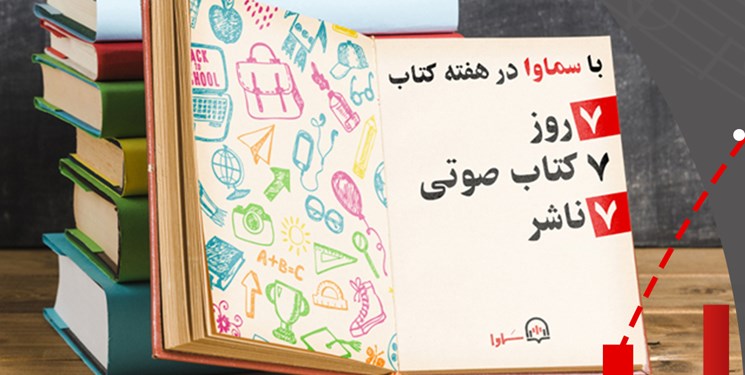 با سماوا در هفته کتاب
۷ روز
۷ کتاب صوتی
۷ ناشر
سماوا
BACK
TO
SCHOOL
A+B=C